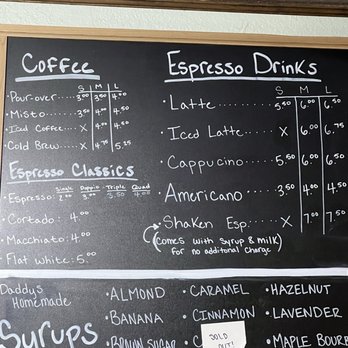 Coffee
S M L
• Pour-over..... 3.00 3.50 4.00
• Misto......... 3.50 4.00 4.50
• Iced Coffee.... X 4.00 4.50
• Cold Brew..... X 4.75 5.25
Espresso Classics
Single Doppio Triple Quad
• Espresso: 3.50 4.00
• Cortado: 4.00
• Macchiato: 4.00
• Flat White: 5.00
Espresso Drinks
S M L
• Latte........ 5.50 6.00 6.50
• Iced Latte..... X 6.00 6.75
• Cappucino..... 5.50 6.00 6.50
• Americano 3.50 4.00 4.50
• Shaken Esp.... X 7.00 7.50
(Comes with syrup & milk)
for no additonal charge
Daddys
Homemade
Syrups
• ALMOND
• BANANA
• BROWN SUGAR
• CARAMEL
• CINNAMON
• C
SOLD
OUT!
• HAZELNUT
• LAVENDER
• MAPLE BOURB